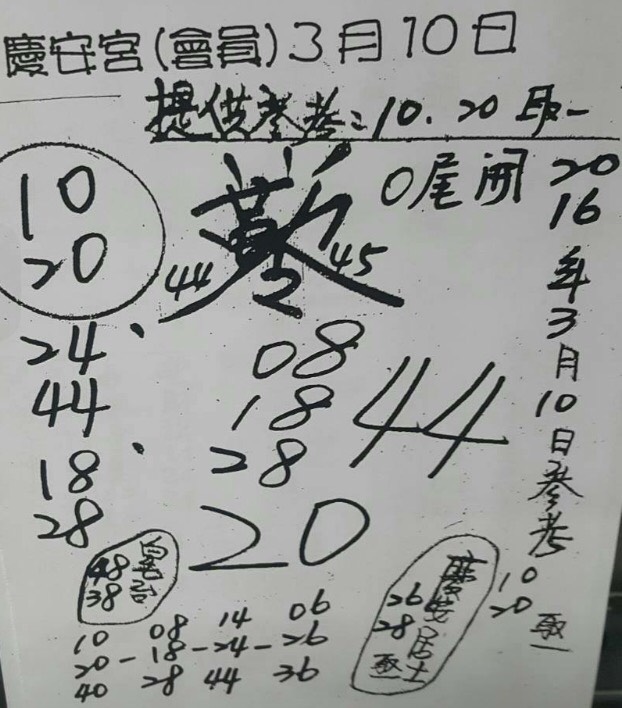 慶安宮(會員)3月10日
提供參考:10.20取一
10
20
44
45
0尾開
2016年3月10日參考
10
20
取一
24
44
18
28
08
18
28
44
20
48
38
慶安居士
26
28
取一
10 08 14 06
20-18-24-26
40 28 44 36